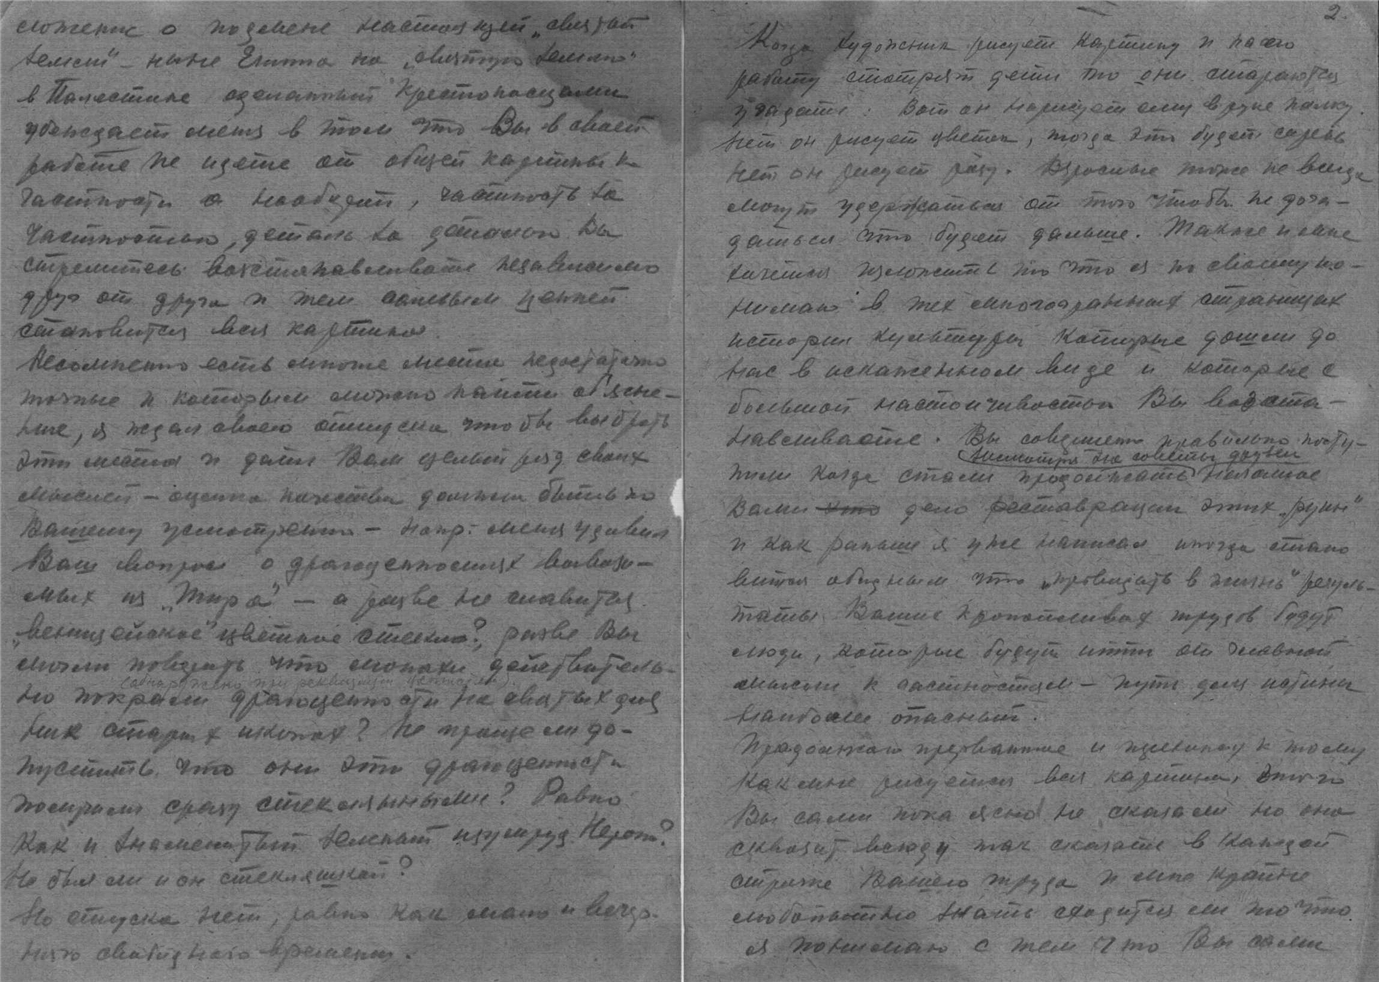 сложение о подмене настоящей „святой
земли" – ныне Египта на „святую землю"
в Палестине сделанный Крестоносцами
убеждает меня в том что Вы в своей
работе не идете от общей картины к
частности а наоборот, частность за
частностью, деталь за деталью Вы
стремитесь восстанавливать независимо
друг от друга и тем самым ценней
становится вся картина.
Несомненно есть многие места недостаточно
точные и которым можно найти об'ясне-
ние, я ждал своего отпуска чтобы выбрать
эти места и дать Вам целый ряд своих
мыслей – оценка качества должна быть по
Вашему усмотрению – напр: меня удивил
Ваш вопрос о драгоценностях вывози-
мых из „Тира" – а разве не славится
„венецейское" цветное стекло?, разве Вы
могли поверить что монахи действитель-
(обнаружено при реквизиции ценностей)
но покрали драгоценности на окладах для
них старых иконах? Не проще ли до-
пустить что они эти драгоценности
посчитали сразу стеклянными? Равно
как и знаменитый зеленый изумруд Нерона?
Не был ли и он стекляшкой?
Но отпуска нет, равно как мало и вечер-
него свободного времени.
2.
Когда художник рисует картину и на его
работу смотрят дети то они стараются
угадать. Вот он нарисует ему в руке палку.
Нет он рисует цветок, тогда это будет сирень
нет он рисует розу. Взрослые тоже не всегда
могут удержаться от того чтобы не дога-
даться что будет дальше. Также и мне
хочется изложить то что я по своему по-
нимаю в тех многогранных страницах
истории культуры которые дошли до
нас в искаженном виде и которые с
большой настойчивостью Вы восста-
навливаете. Вы совершенно правильно посту-
несмотря на советы друзей
пили когда стали продолжать начатое
Вами это дело реставрации этих „руин"
и как раньше я уже написал иногда стано
вится обидным что „проводить в жизнь" резуль-
таты Ваших кропотливых трудов будут
люди, которые будут итти от главной
мысли к частностям – путь для истины
наиболее опасный.
Продолжаю прерванное и перехожу к тому
как мне рисуется вся картина, этого
Вы сами пока ясно не сказали но она
сквозит всюду так сказать в каждой
строчке Вашего труда и мне крайне
любопытно знать сходится ли то что
я понимаю с тем что Вы сами